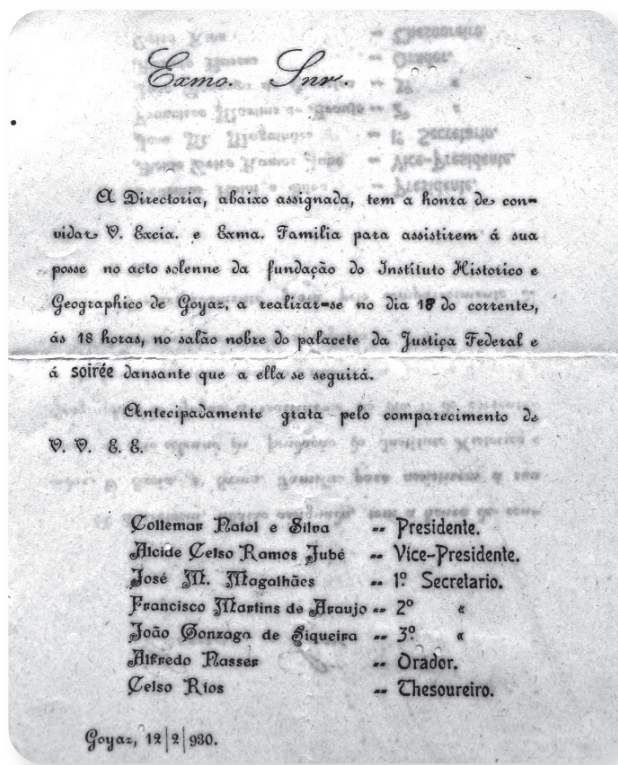 Exmo. Snr.
A Directoria, abaixo assignada, tem a honra de con-
vidar V. Excia. e Exma. Familia para assistirem á sua
posse no acto solenne da fundação do Instituto Historico e
Geographico de Goyaz, a realizar-se no dia 18 do corrente,
ás 18 horas, no salão nobre do palacete da Justiça Federal e
á soirée dansante que a ella se seguirá.
Antecipadamente grata pelo comparecimento de
V. V. E. E.
Collemar Natal e Silva -- Presidente.
Alcide Celso Ramos Jubé -- Vice-Presidente.
José M. Magalhães -- 1º Secretario.
Francisco Martins de Araujo -- 2º «
João Gonzaga de Siqueira -- 3º. «
Alfredo Nasser -- Orador.
Celso Rios -- Thesoureiro.
Goyaz, 12|2|930.